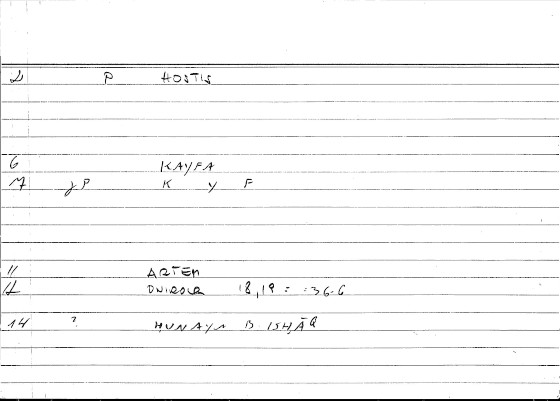 2 P HOSTIS
6 KAYFA
7 γP K Y F
11 ARTEM
12 ONIROCR 18,19 = :36.6
14 ? HUNAYN B. ISHĀQ